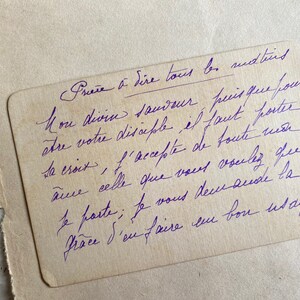 Prière à dire tous les matins
Mon divin sauveur puisque pour
être votre disciple, il faut porter
sa croix, j'accepte de toute mon
âme celle que vous voulez que
je porte; je vous demande la
grâce d'en faire un bon us